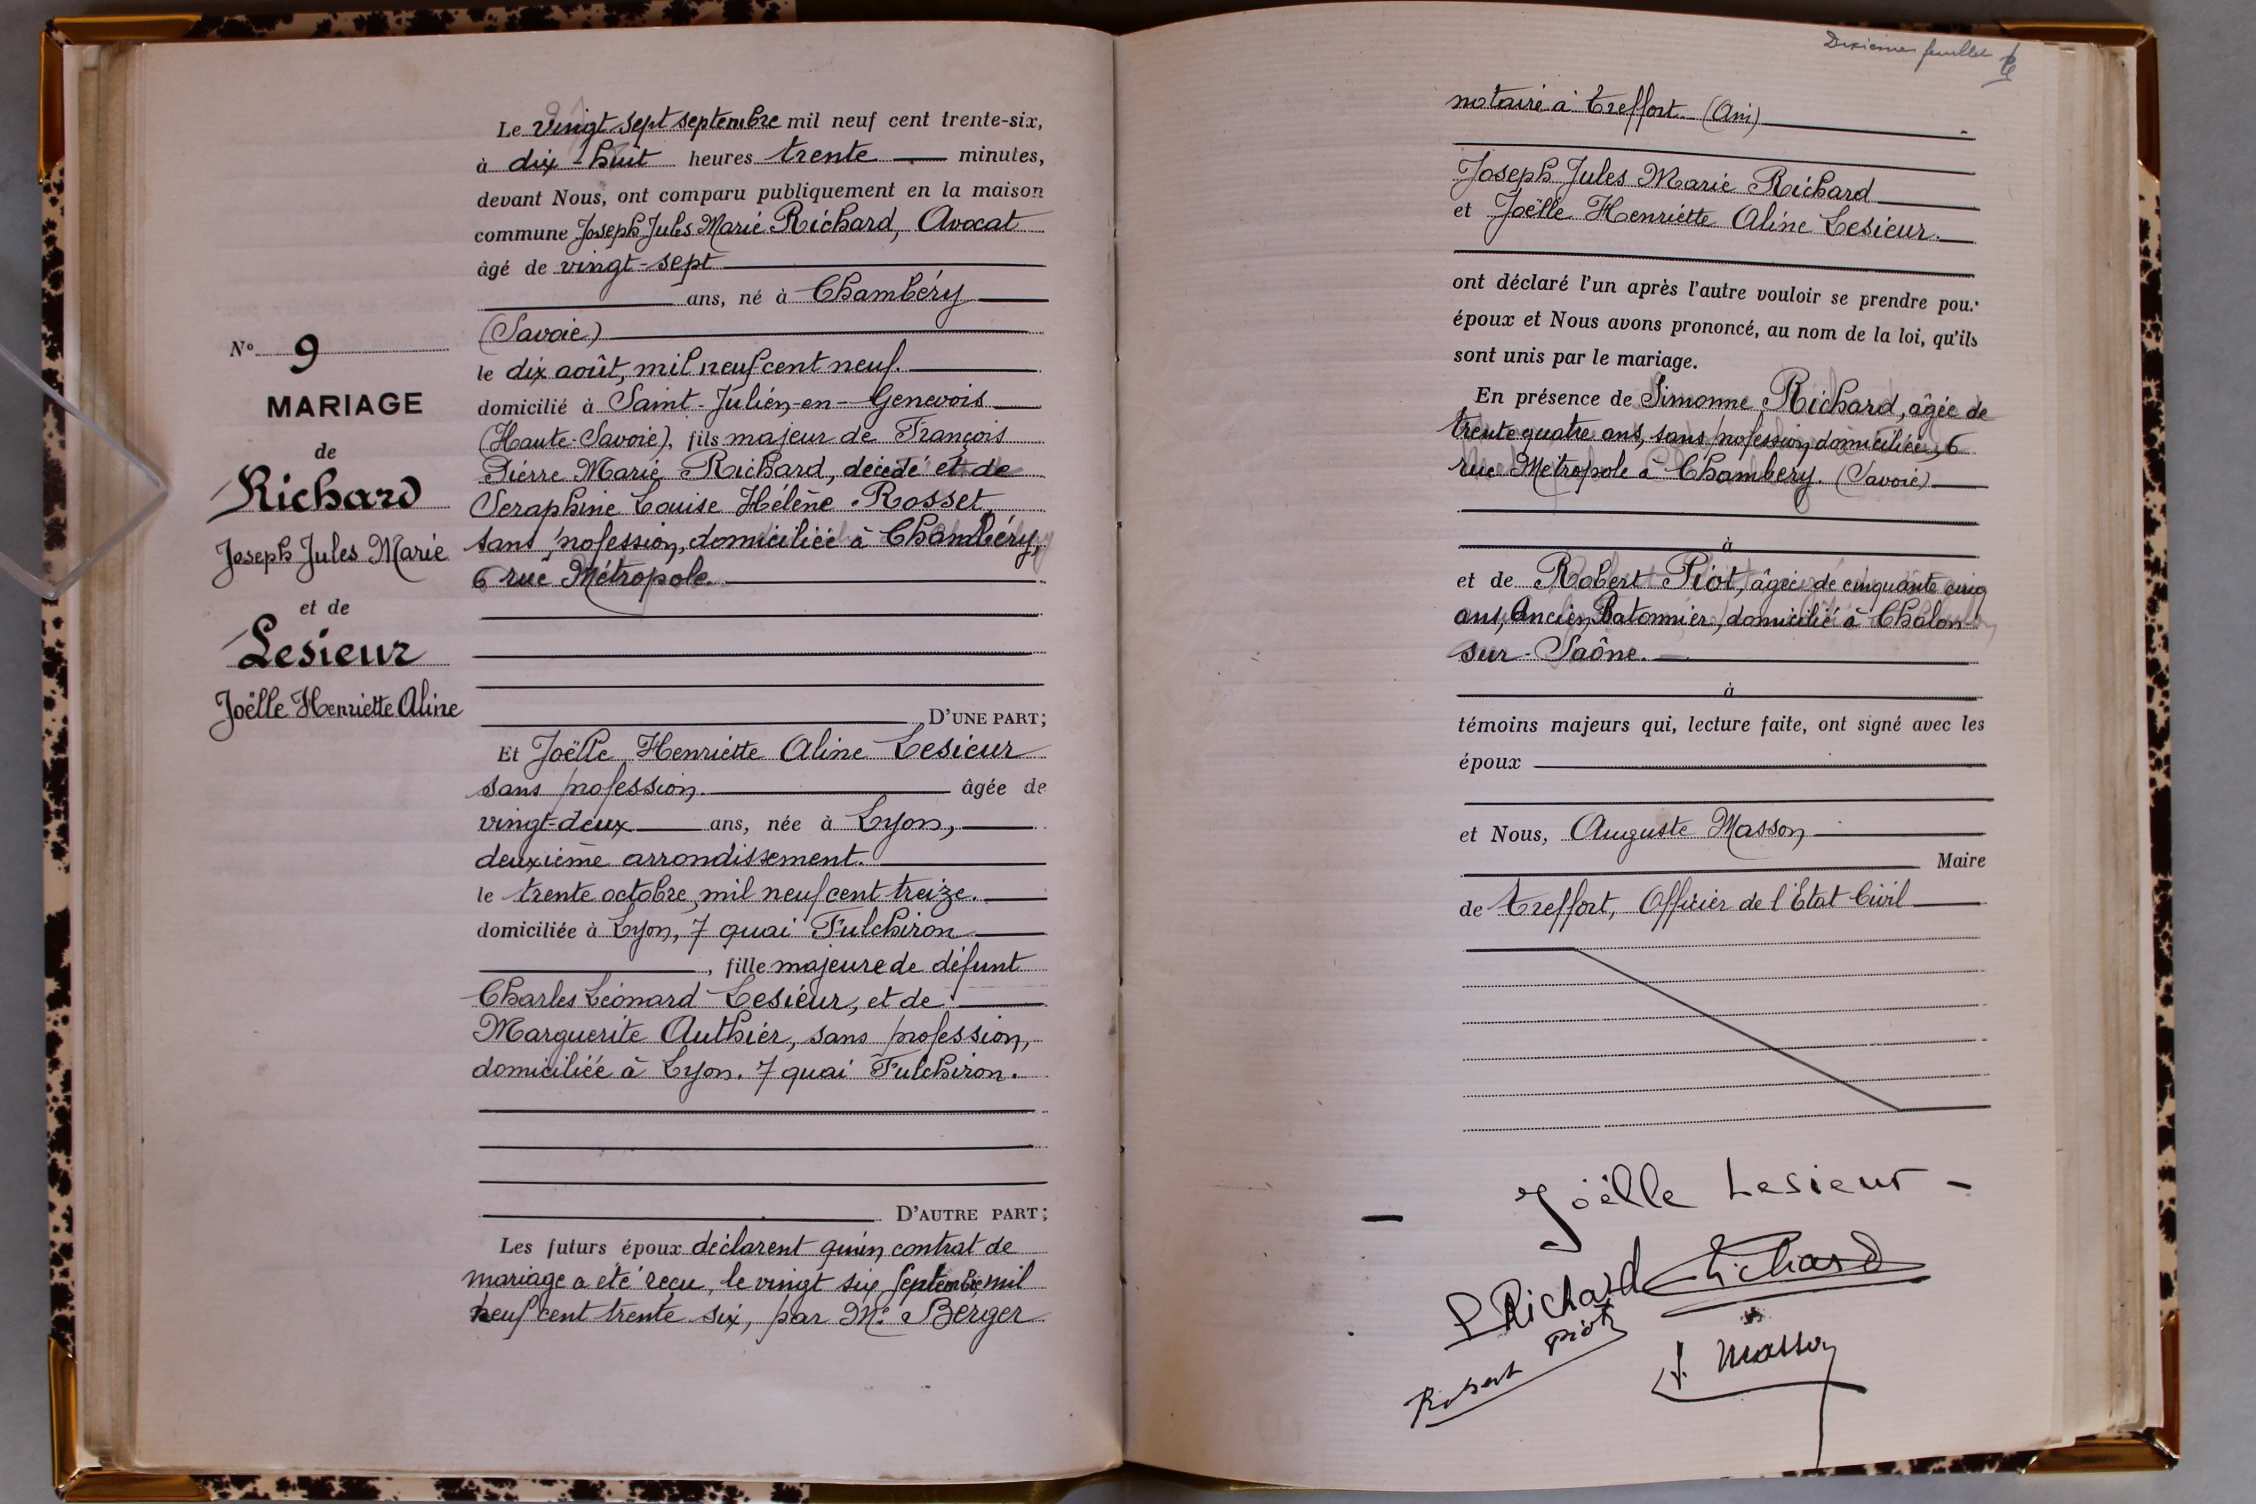 N° 9
MARIAGE
de
Richard
Joseph Jules Marie
et de
Lesieur
Joëlle Henriette Aline
Le vingt sept septembre mil neuf cent trente-six,
à dix-huit heures trente minutes,
devant Nous, ont comparu publiquement en la maison
commune Joseph Jules Marie Richard, Avocat
âgé de vingt-sept
ans, né à Chambéry
(Savoie)
le dix août, mil neuf cent neuf.
domicilié à Saint-Julien-en-Genevois
(Haute-Savoie), fils majeur de François
Pierre Marie Richard, décédé et de
Seraphine Louise Hélène Rosset,
sans profession, domiciliée à Chambéry,
6 rue Métropole.
D'UNE PART;
Et Joëlle Henriette Aline Lesieur
sans profession. âgée de
vingt-deux ans, née à Lyon,
deuxième arrondissement.
le trente octobre, mil neuf cent treize.
domiciliée à Lyon, 7 quai Fulchiron
, fille majeure de défunt
Charles Léonard Lesieur, et de
Marguerite Authier, sans profession,
domiciliée à Lyon. 7 quai Fulchiron.
D'AUTRE PART;
Les futurs époux déclarent qu'un contrat de
mariage a été reçu, le vingt six Septembre mil
neuf cent trente six, par Me Berger
Dixième feuillet
notaire à Treffort. (Ain)
Joseph Jules Marie Richard
et Joëlle Henriette Aline Lesieur.
ont déclaré l'un après l'autre vouloir se prendre pour
époux et Nous avons prononcé, au nom de la loi, qu'ils
sont unis par le mariage.
En présence de Simonne Richard, âgée de
trente quatre ans, sans profession domiciliée, 6
rue Métropole à Chambéry. (Savoie)
à
et de Robert Piot, âgée de cinquante cinq
ans, Ancien Batonnier, domicilié à Chalon
sur-Saône.
à
témoins majeurs qui, lecture faite, ont signé avec les
époux
et Nous, Auguste Masson
Maire
de Treffort, Officier de l'Etat Civil
Joëlle Lesieur
Richard
Richard
Robert Piot
Masson